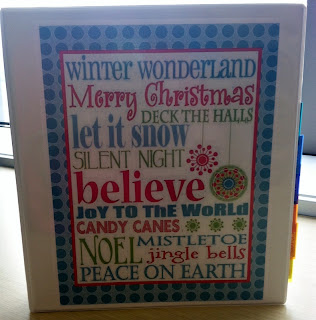 winter wonderland
Merry Christmas
DECK THE HALLS
let it snow
SILENT NIGHT
believe
JOY TO THE WORLD
CANDY CANES
NOEL MISTLETOE
jingle bells
PEACE ON EARTH